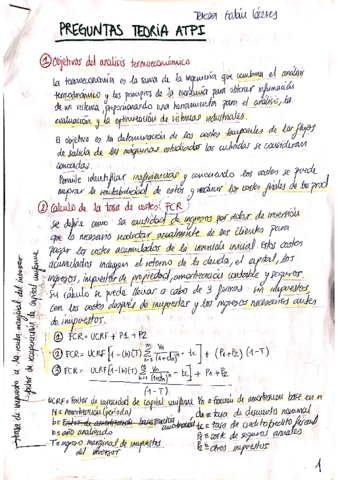 PREGUNTAS TEORIA ATPI
① Objetivos del analisis termoeconómico
La termoeconomía es la rama de la ingeniería que combina el análisis
termodinámico y los principios de la economía para obtener información
de un sistema, proporcionando una herramienta para el análisis, la
evaluación y la optimización de sistemas industriales.
El objetivo es la determinación de los costes temporales de los flujos
de salida de las máquinas estudiadas los cuales se consideran
conocidos.
Permite identificar ineficiencias y conociendo los costes se puede
mejorar la rentabilidad de estos y reducir los costes finales de los prod
② Calculo de la tasa de costes: FCR
Se define como la cantidad de ingresos por dolar de inversión
que es necesario recolectar anualmente de los clientes para
pagar los costes acumulados de la inversión inicial. Estos costes
acumulados incluyen el retorno de la deuda, el capital, los
ingresos, impuestos de propiedad, amortización contable y seguros.
Su cálculo se puede llevar a cabo de 3 formas: sin impuestos,
con los costes después de impuestos y los ingresos necesarios antes
de impuestos.
① FCR = UCRF + P1 + P2
② FCR = UCRF [1-(b)(T) Σ Vn/(1+dn)ⁿ - tc] + (P1+P2) (1-T)
③ FCR = UCRF [1-(b)(T) Σ Vn/(1+dn)ⁿ - tc] + P1 + P2
(1-T)
UCRF = Factor de capacidad de capital uniforme
Vn = Fracción de amortización base en n
N = Amortización (período)
dn = tasa de descuento nominal
n = año analizado
tc = tasa de credito/credito fiscal
T = ingreso marginal de impuestos
del inversor
P1 = coste de seguros anuales
P2 = otros impuestos
tasa de impuesto a la renta marginal del inversor
factor de recuperación de capital uniforme
1